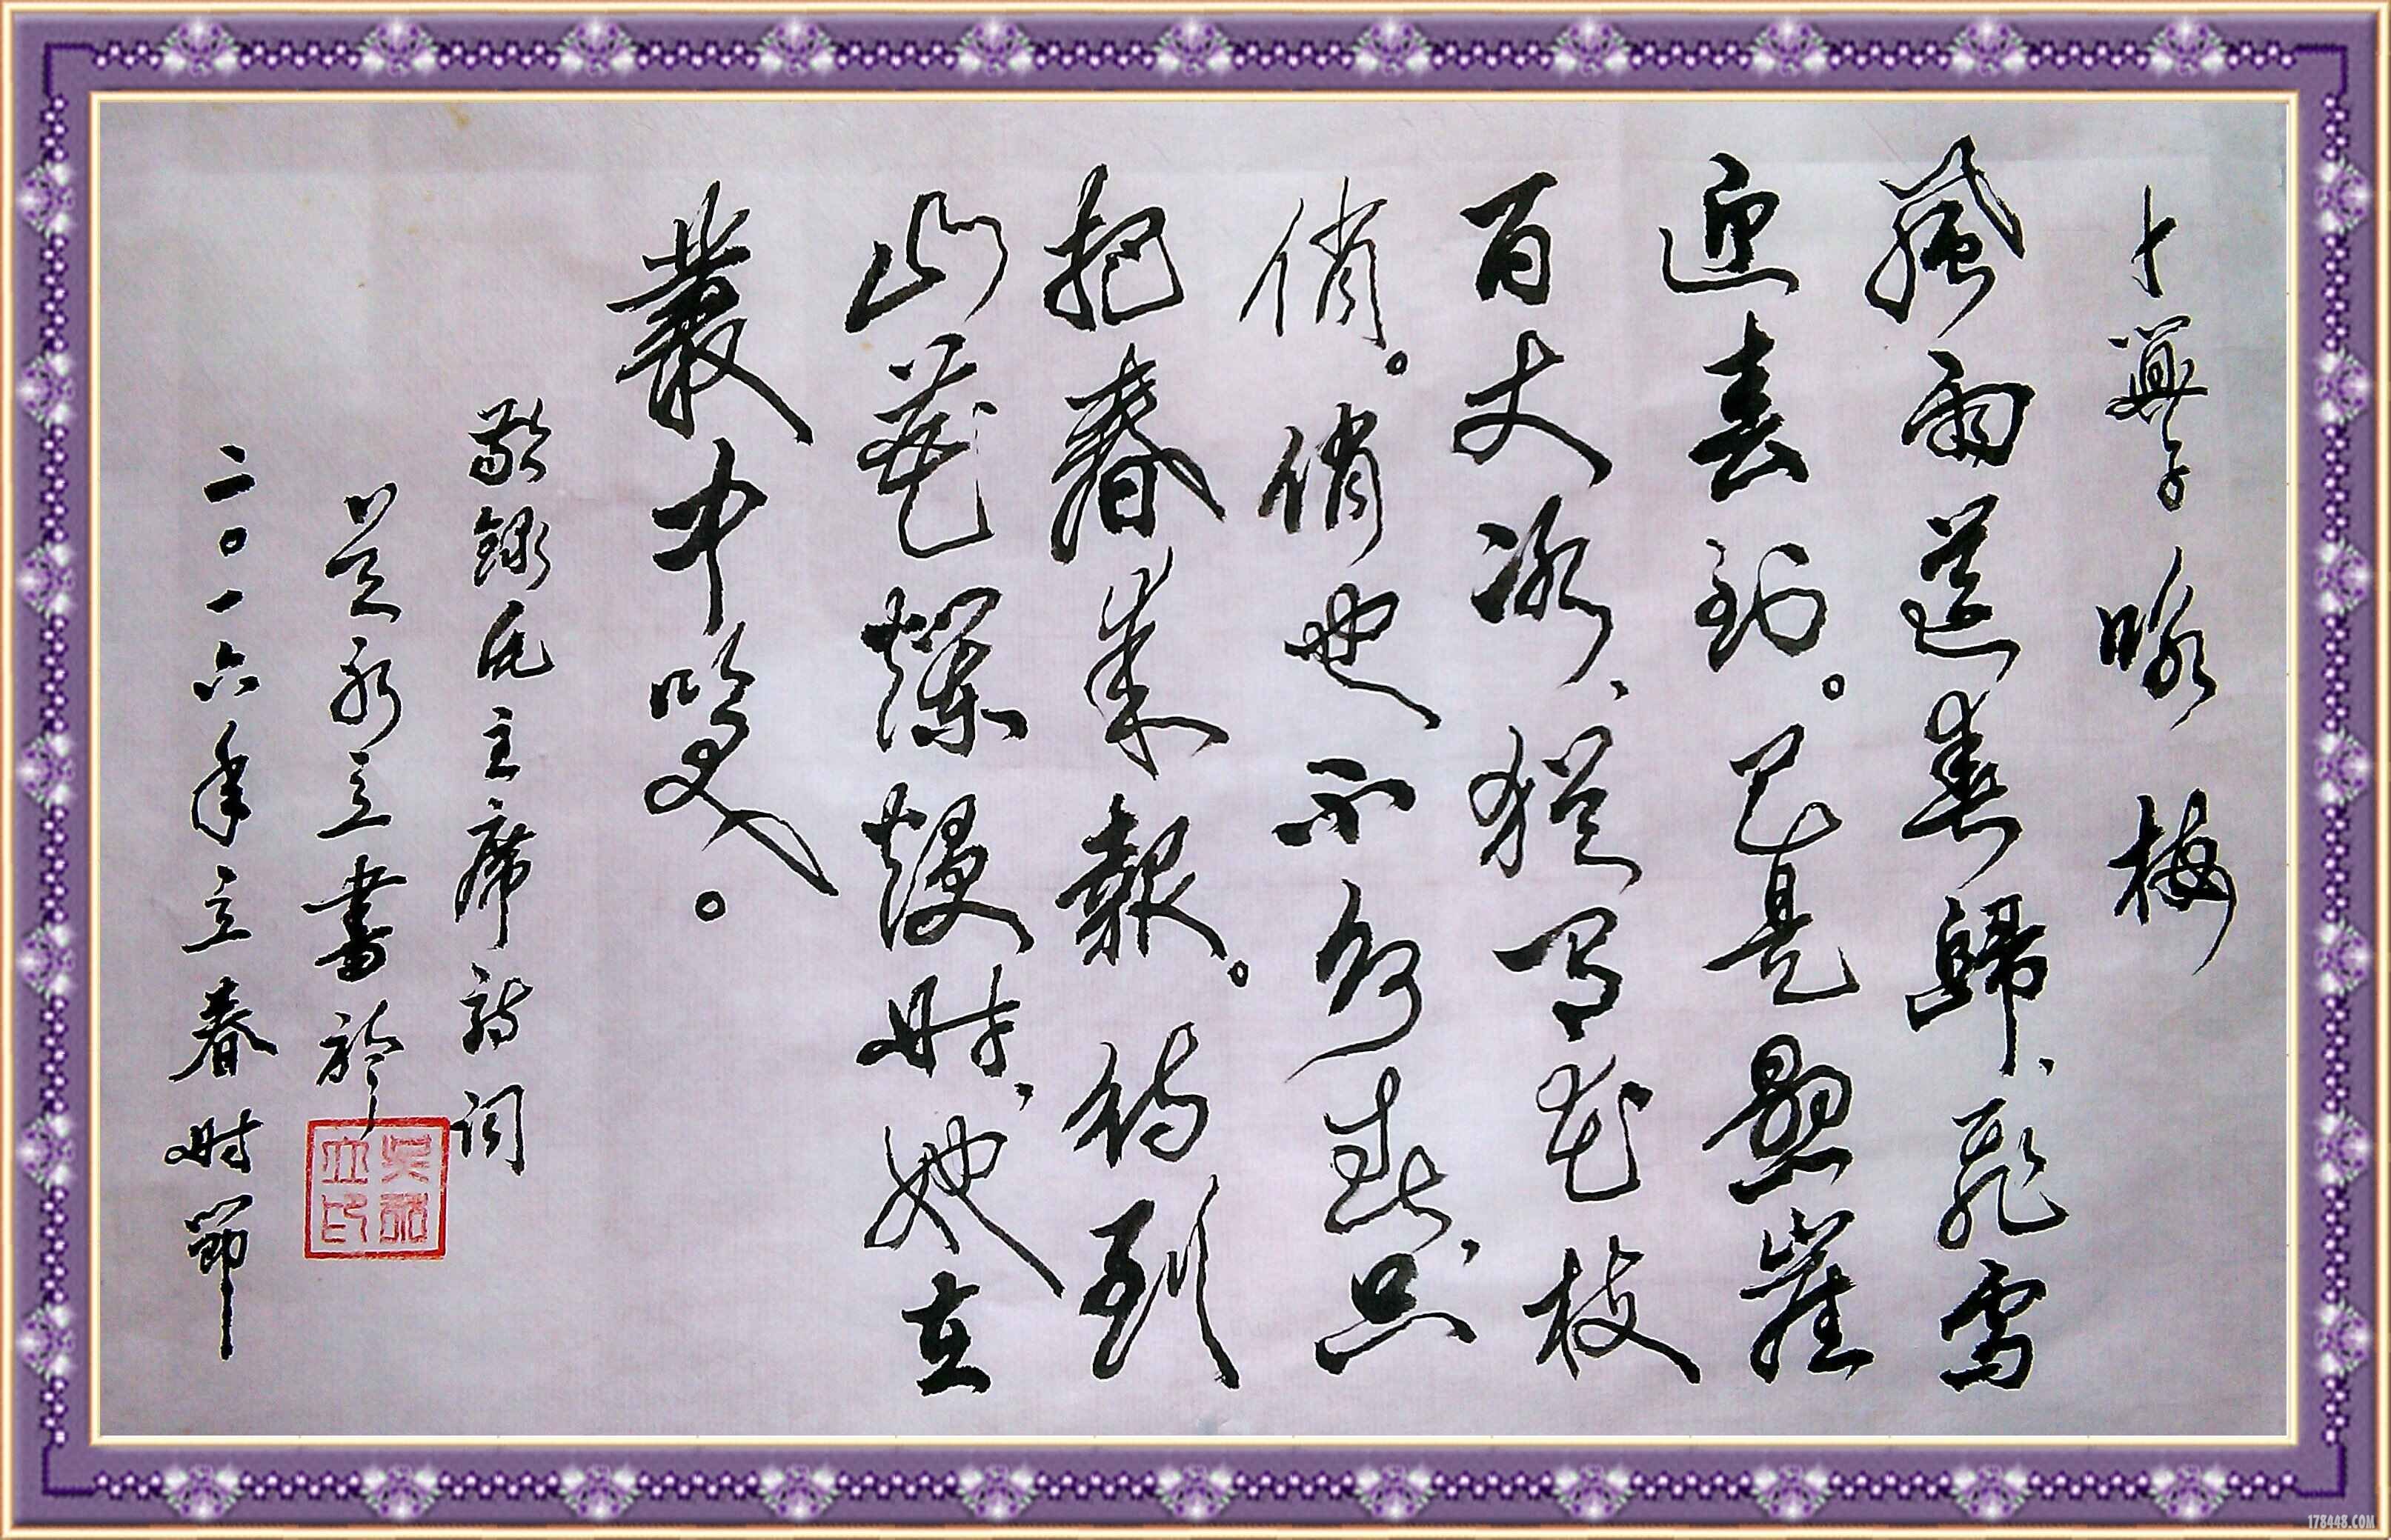 卜算子咏梅
風雨送春歸、飛雪
迎春到。已是懸崖
百丈冰、猶有花枝
俏。俏也不争春、只
把春来報。待到
山花爛熳时、她在
叢中笑。
敬録毛主席詩词
吴永立書於
二〇一六年立春时節
吳永立印
178448.COM